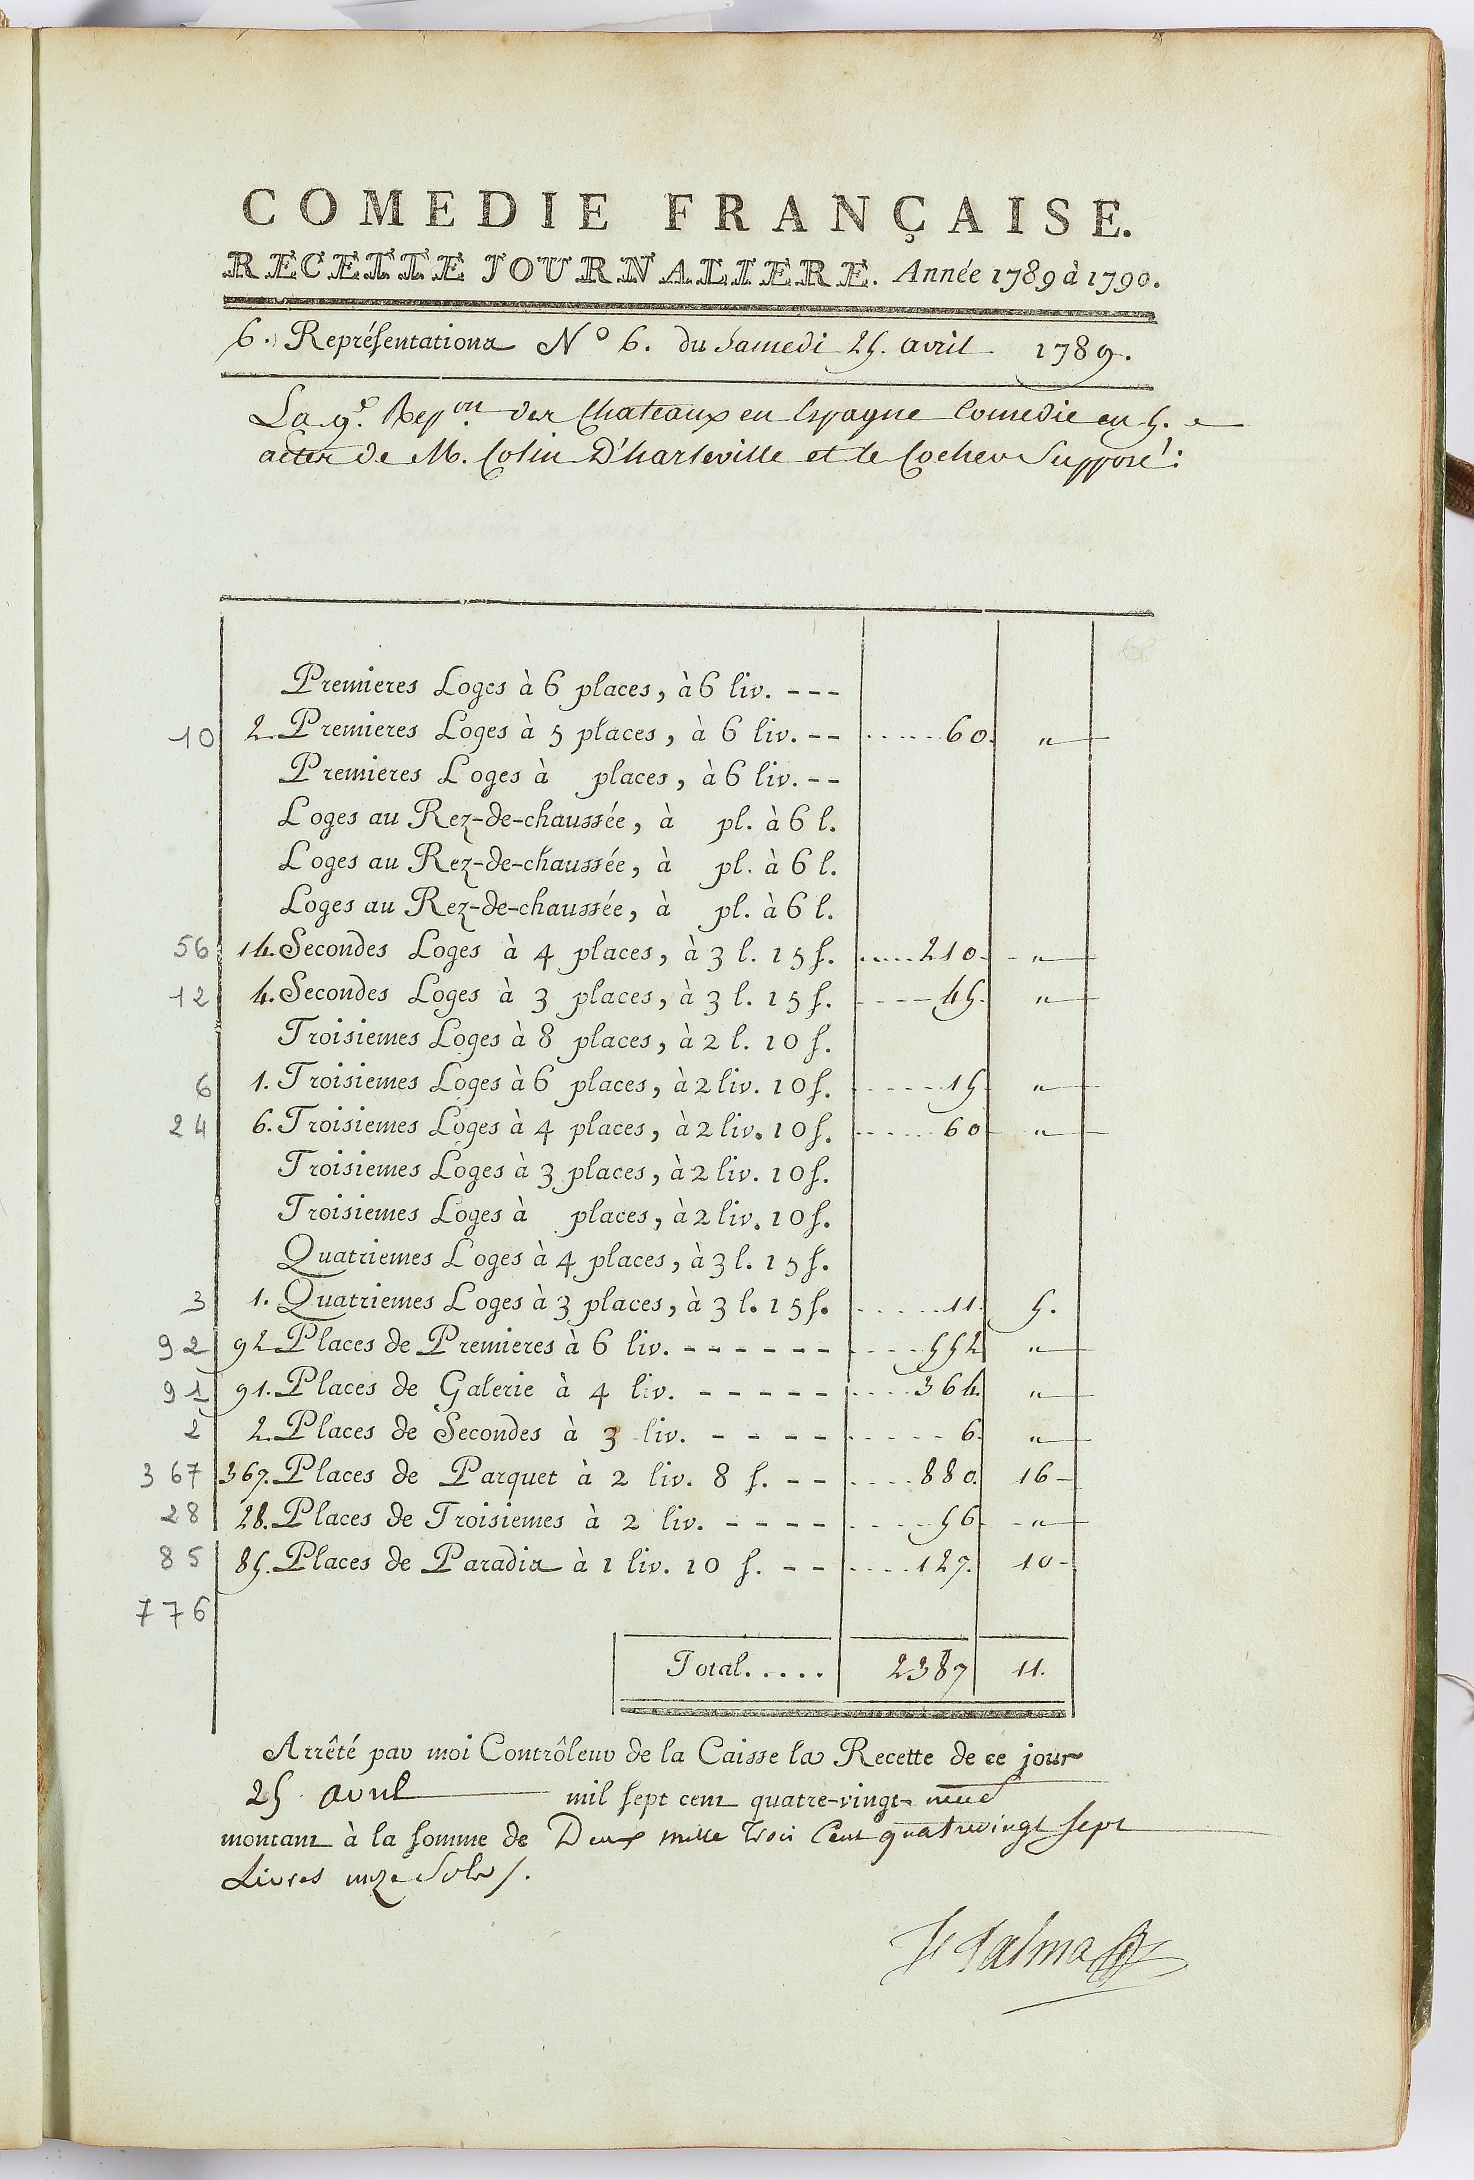 COMEDIE FRANÇAISE.
RECETTE JOURNALIERE. Année 1789 à 1790.
6. Représentations N° 6. du Samedi 25. avril 1789.
La 9e Repon des Chateaux en Espagne Comedie en 5.
actes de M. Colin D'harleville et le Cocher Supposé.
Premieres Loges à 6 places, à 6 liv. ---
10 2. Premieres Loges à 5 places, à 6 liv. -- ..... 60. "
Premieres Loges à places, à 6 liv. --
Loges au Rez-de-chaussée, à pl. à 6 l.
Loges au Rez-de-chaussée, à pl. à 6 l.
Loges au Rez-de-chaussée, à pl. à 6 l.
56 14. Secondes Loges à 4 places, à 3 l. 15 s. ..... 210. "
12 4. Secondes Loges à 3 places, à 3 l. 15 s. ---- 45. "
Troisiemes Loges à 8 places, à 2 l. 10 s.
6 1. Troisiemes Loges à 6 places, à 2 liv. 10 s. ..... 15 "
24 6. Troisiemes Loges à 4 places, à 2 liv. 10 s. ..... 60 "
Troisiemes Loges à 3 places, à 2 liv. 10 s.
Troisiemes Loges à places, à 2 liv. 10 s.
Quatriemes Loges à 4 places, à 3 l. 15 s.
3 1. Quatriemes Loges à 3 places, à 3 l. 15 s. ..... 11. 5.
92 92 Places de Premieres à 6 liv. ------ .... 552 "
91 91. Places de Galerie à 4 liv. ----- .... 364. "
2 2. Places de Secondes à 3 liv. ---- ..... 6. "
367 367. Places de Parquet à 2 liv. 8 s. -- .... 880. 16
28 28. Places de Troisiemes à 2 liv. ---- .... 56 "
85 85. Places de Paradis à 1 liv. 10 s. -- .... 127. 10
776
Total..... 2387 11.
Arrêté par moi Contrôleur de la Caisse la Recette de ce jour
25 avril mil sept cent quatre-vingt-neuf
montant à la somme de Deux mille trois Cent quatrevingt sept
Livres onze Sols.